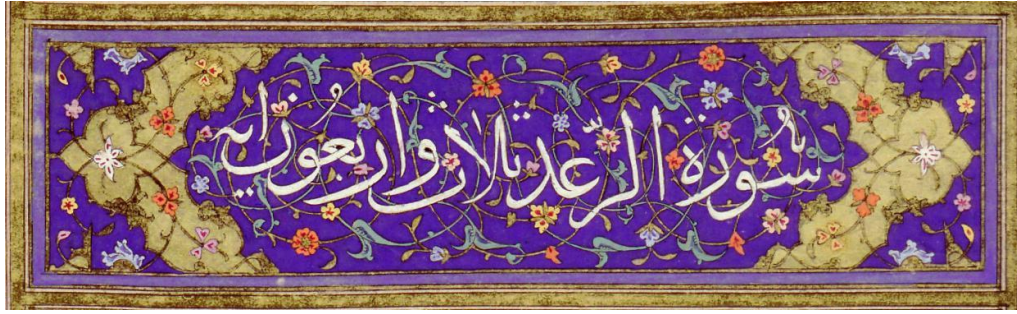 سورة الرعد ثلاث واربعون اية